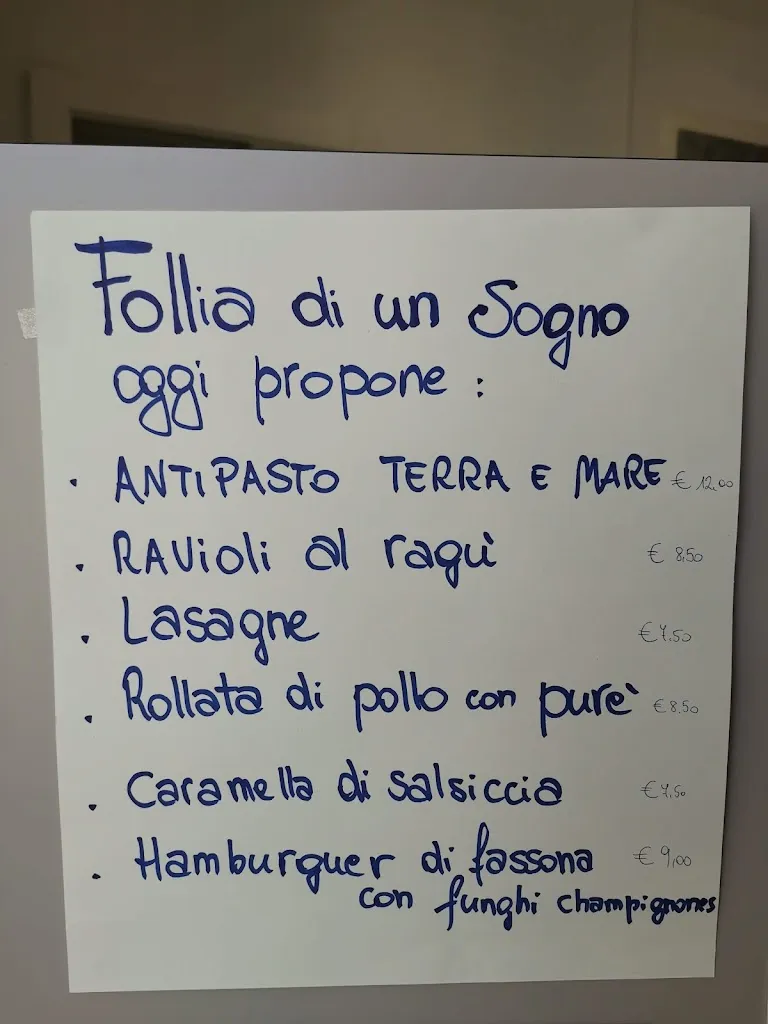 Follia di un Sogno
oggi propone :
· ANTIPASTO TERRA E MARE € 12,00
· RAVioli al ragù € 8,50
· Lasagne € 7,50
· Rollata di pollo con purè € 8.50
· Caramella di salsiccia € 7,50
· Hamburguer di fassona € 9,00
con funghi champignones